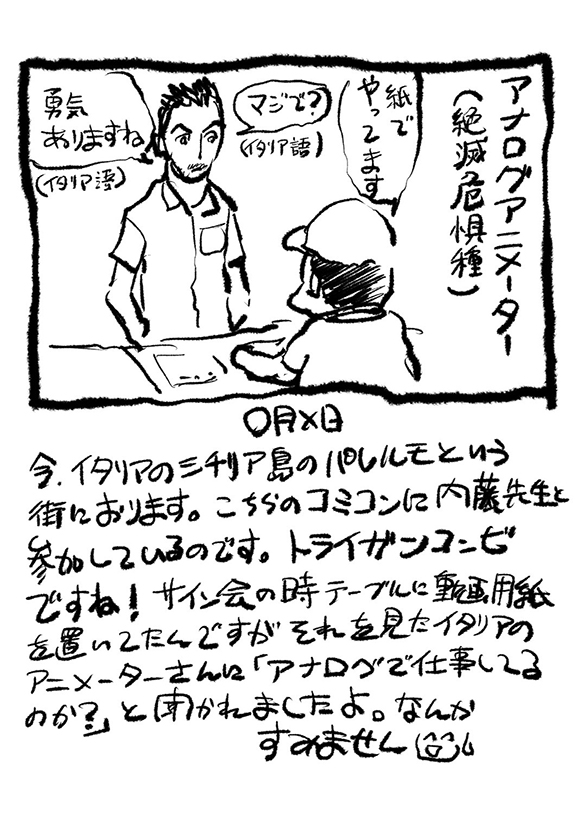 アナログアニメーター
(絶滅危惧種)
紙で
やってます
マジで?
(イタリア語)
勇気
ありますね
(イタリア語)
〇月×日
今、イタリアのシチリア島のパレルモという
街におります。こちらのコミコンに内藤先生と
参加しているのです。トライガンコンビ
ですね!サイン会の時テーブルに動画用紙
を置いてたんですがそれを見たイタリアの
アニメーターさんに「アナログで仕事してる
のか?」と聞かれましたよ。なんか
すみません